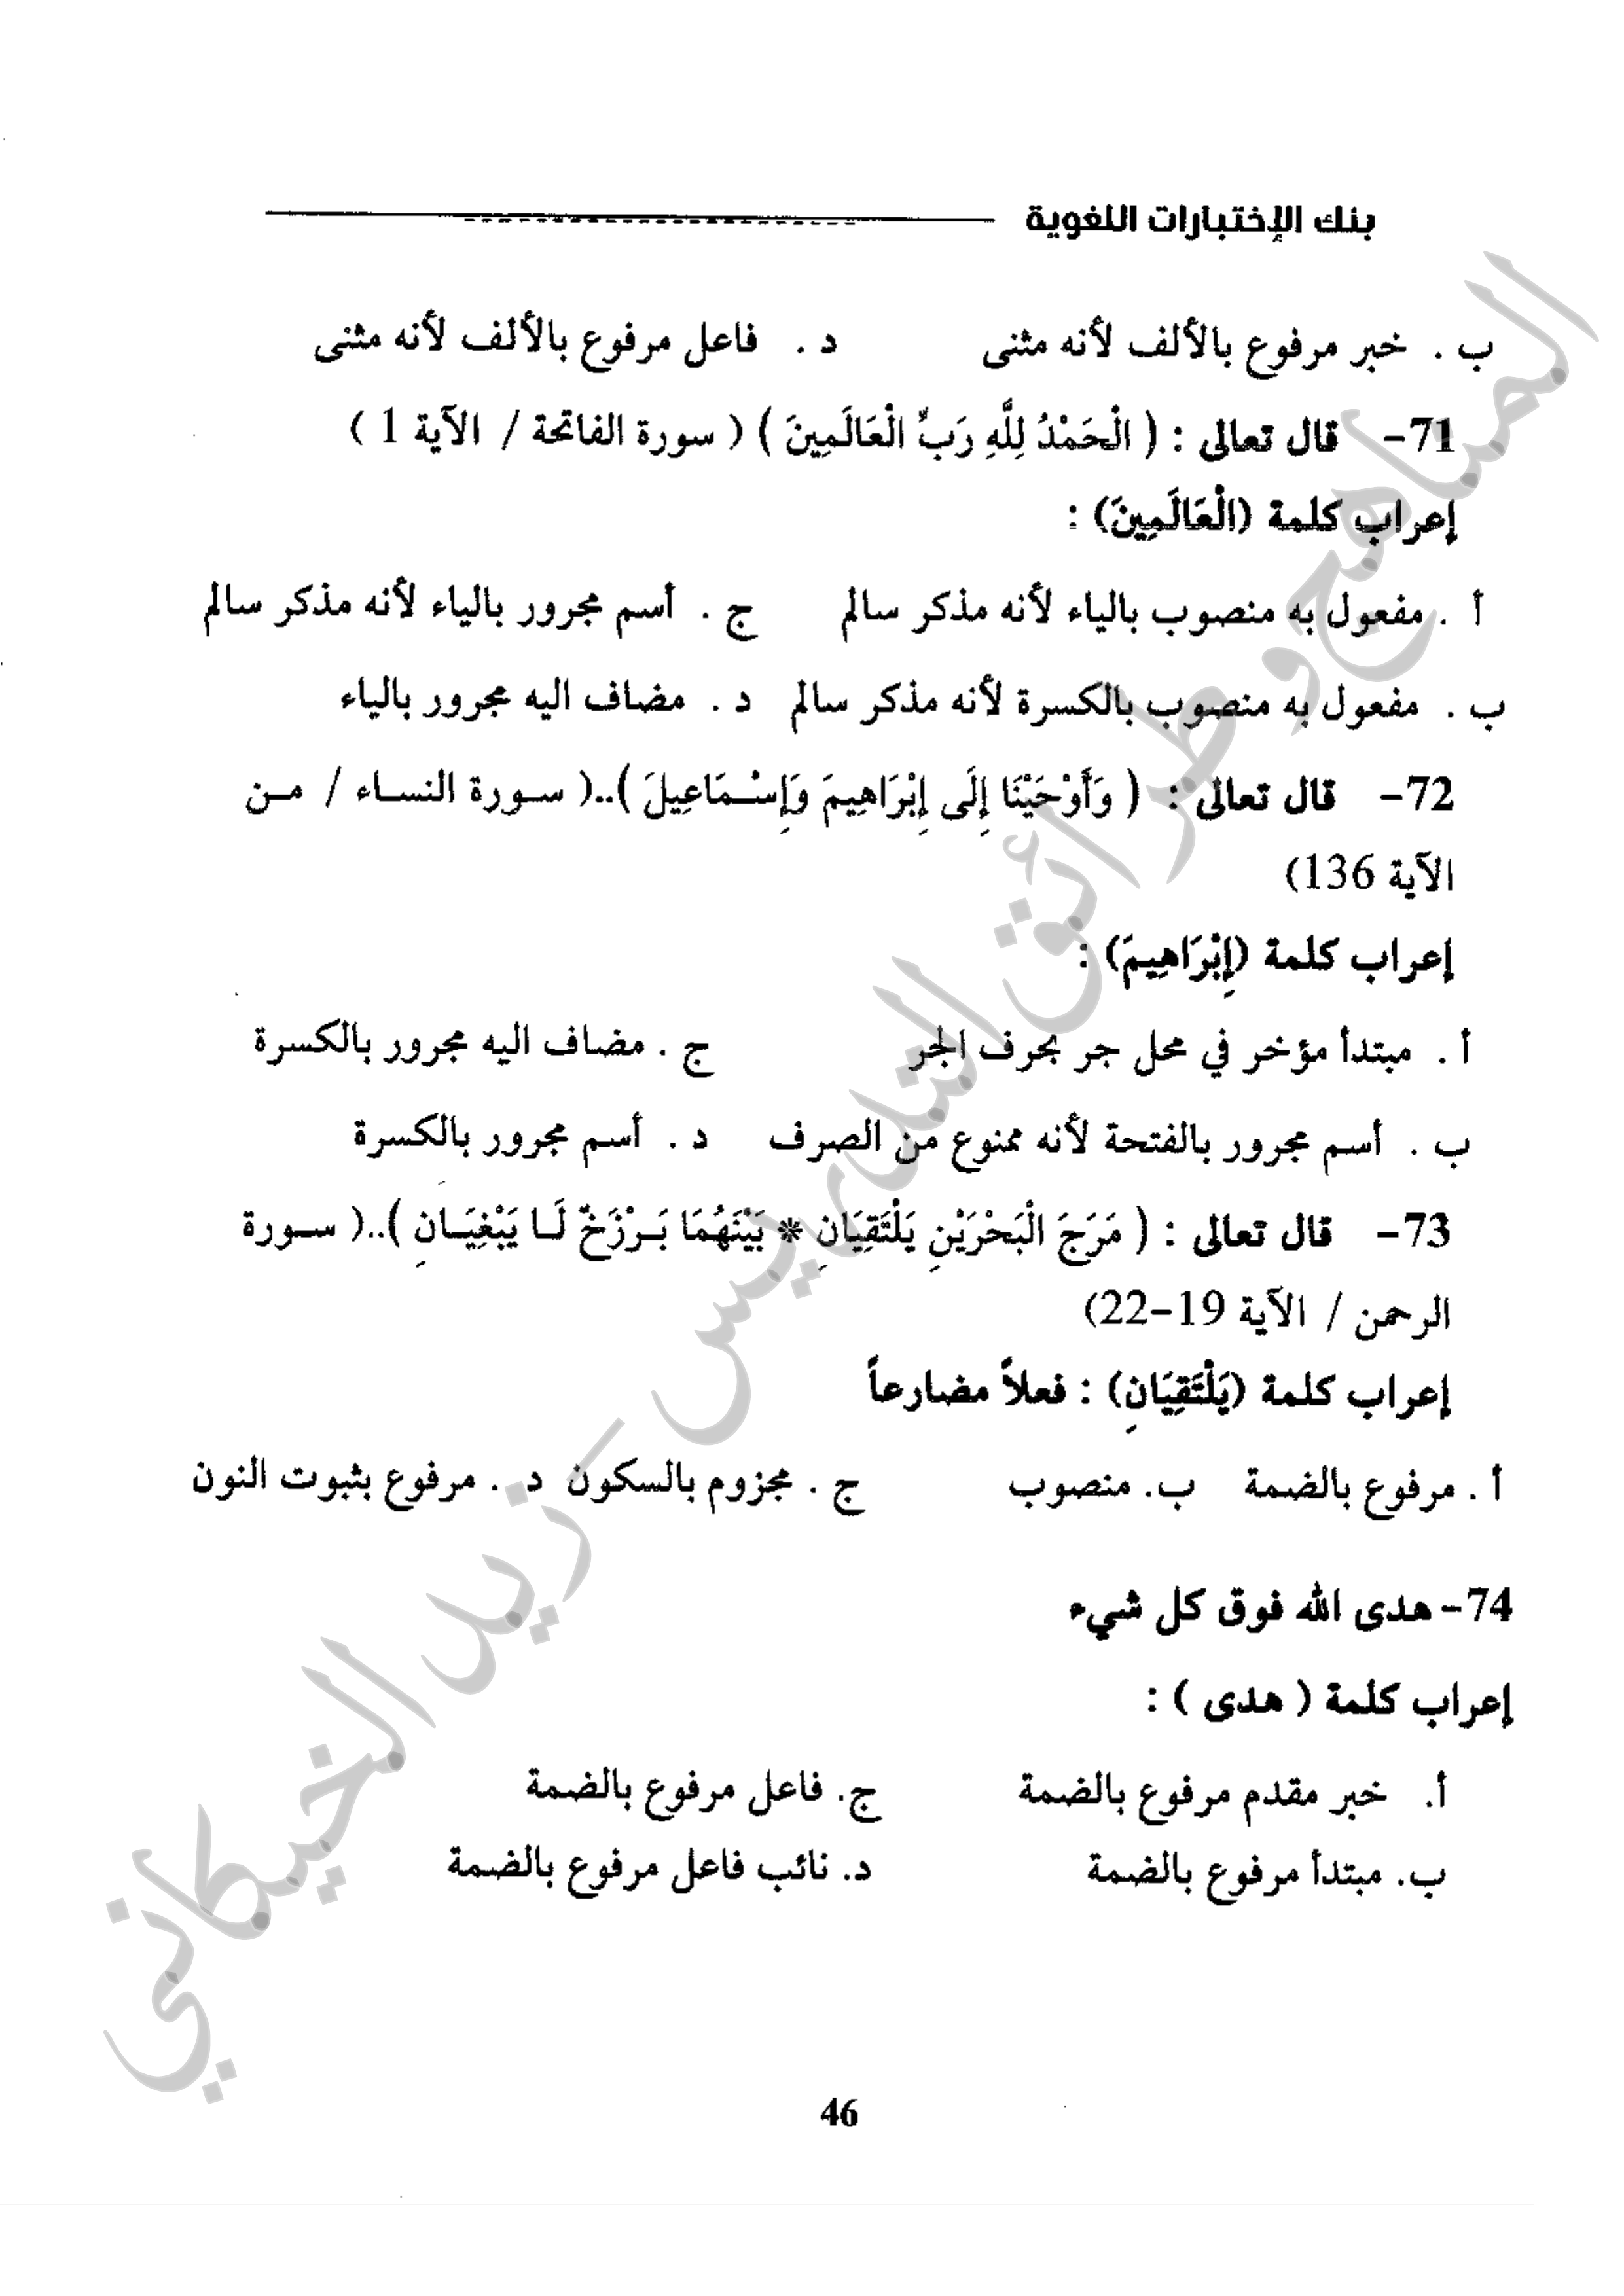 بنك الإختبارات اللغوية
ب . خبر مرفوع بالألف لأنه مثنى د . فاعل مرفوع بالألف لأنه مثنى
71- قال تعالى : ( الْحَمْدُ لِلَّهِ رَبِّ الْعَالَمِينَ ) ( سورة الفاتحة / الآية 1 )
إعراب كلمة (الْعَالَمِينَ) :
أ . مفعول به منصوب بالياء لأنه مذكر سالم ج . أسم مجرور بالياء لأنه مذكر سالم
ب . مفعول به منصوب بالكسرة لأنه مذكر سالم د . مضاف اليه مجرور بالياء
72- قال تعالى : ( وَأَوْحَيْنَا إِلَى إِبْرَاهِيمَ وَإِسْـمَاعِيلَ )..( سـورة النسـاء / مـن
الآية 136)
إعراب كلمة (إِبْرَاهِيمَ) :
أ . مبتدأ مؤخر في محل جر بحرف الجر ج . مضاف اليه مجرور بالكسرة
ب . أسم مجرور بالفتحة لأنه ممنوع من الصرف د . أسم مجرور بالكسرة
73- قال تعالى : ( مَرَجَ الْبَحْرَيْنِ يَلْتَقِيَانِ * بَيْنَهُمَا بَـرْزَخٌ لَـا يَبْغِيَـانِ )..( سـورة
الرحمن / الآية 19-22)
إعراب كلمة (يَلْتَقِيَانِ) : فعلاً مضارعاً
أ . مرفوع بالضمة ب. منصوب ج . مجزوم بالسكون د . مرفوع بثبوت النون
74- هدى الله فوق كل شيء
إعراب كلمة ( هدى ) :
أ. خبر مقدم مرفوع بالضمة ج. فاعل مرفوع بالضمة
ب. مبتدأ مرفوع بالضمة د. نائب فاعل مرفوع بالضمة
46
المناهج وطرائق التدريس - زيد الخيكاني